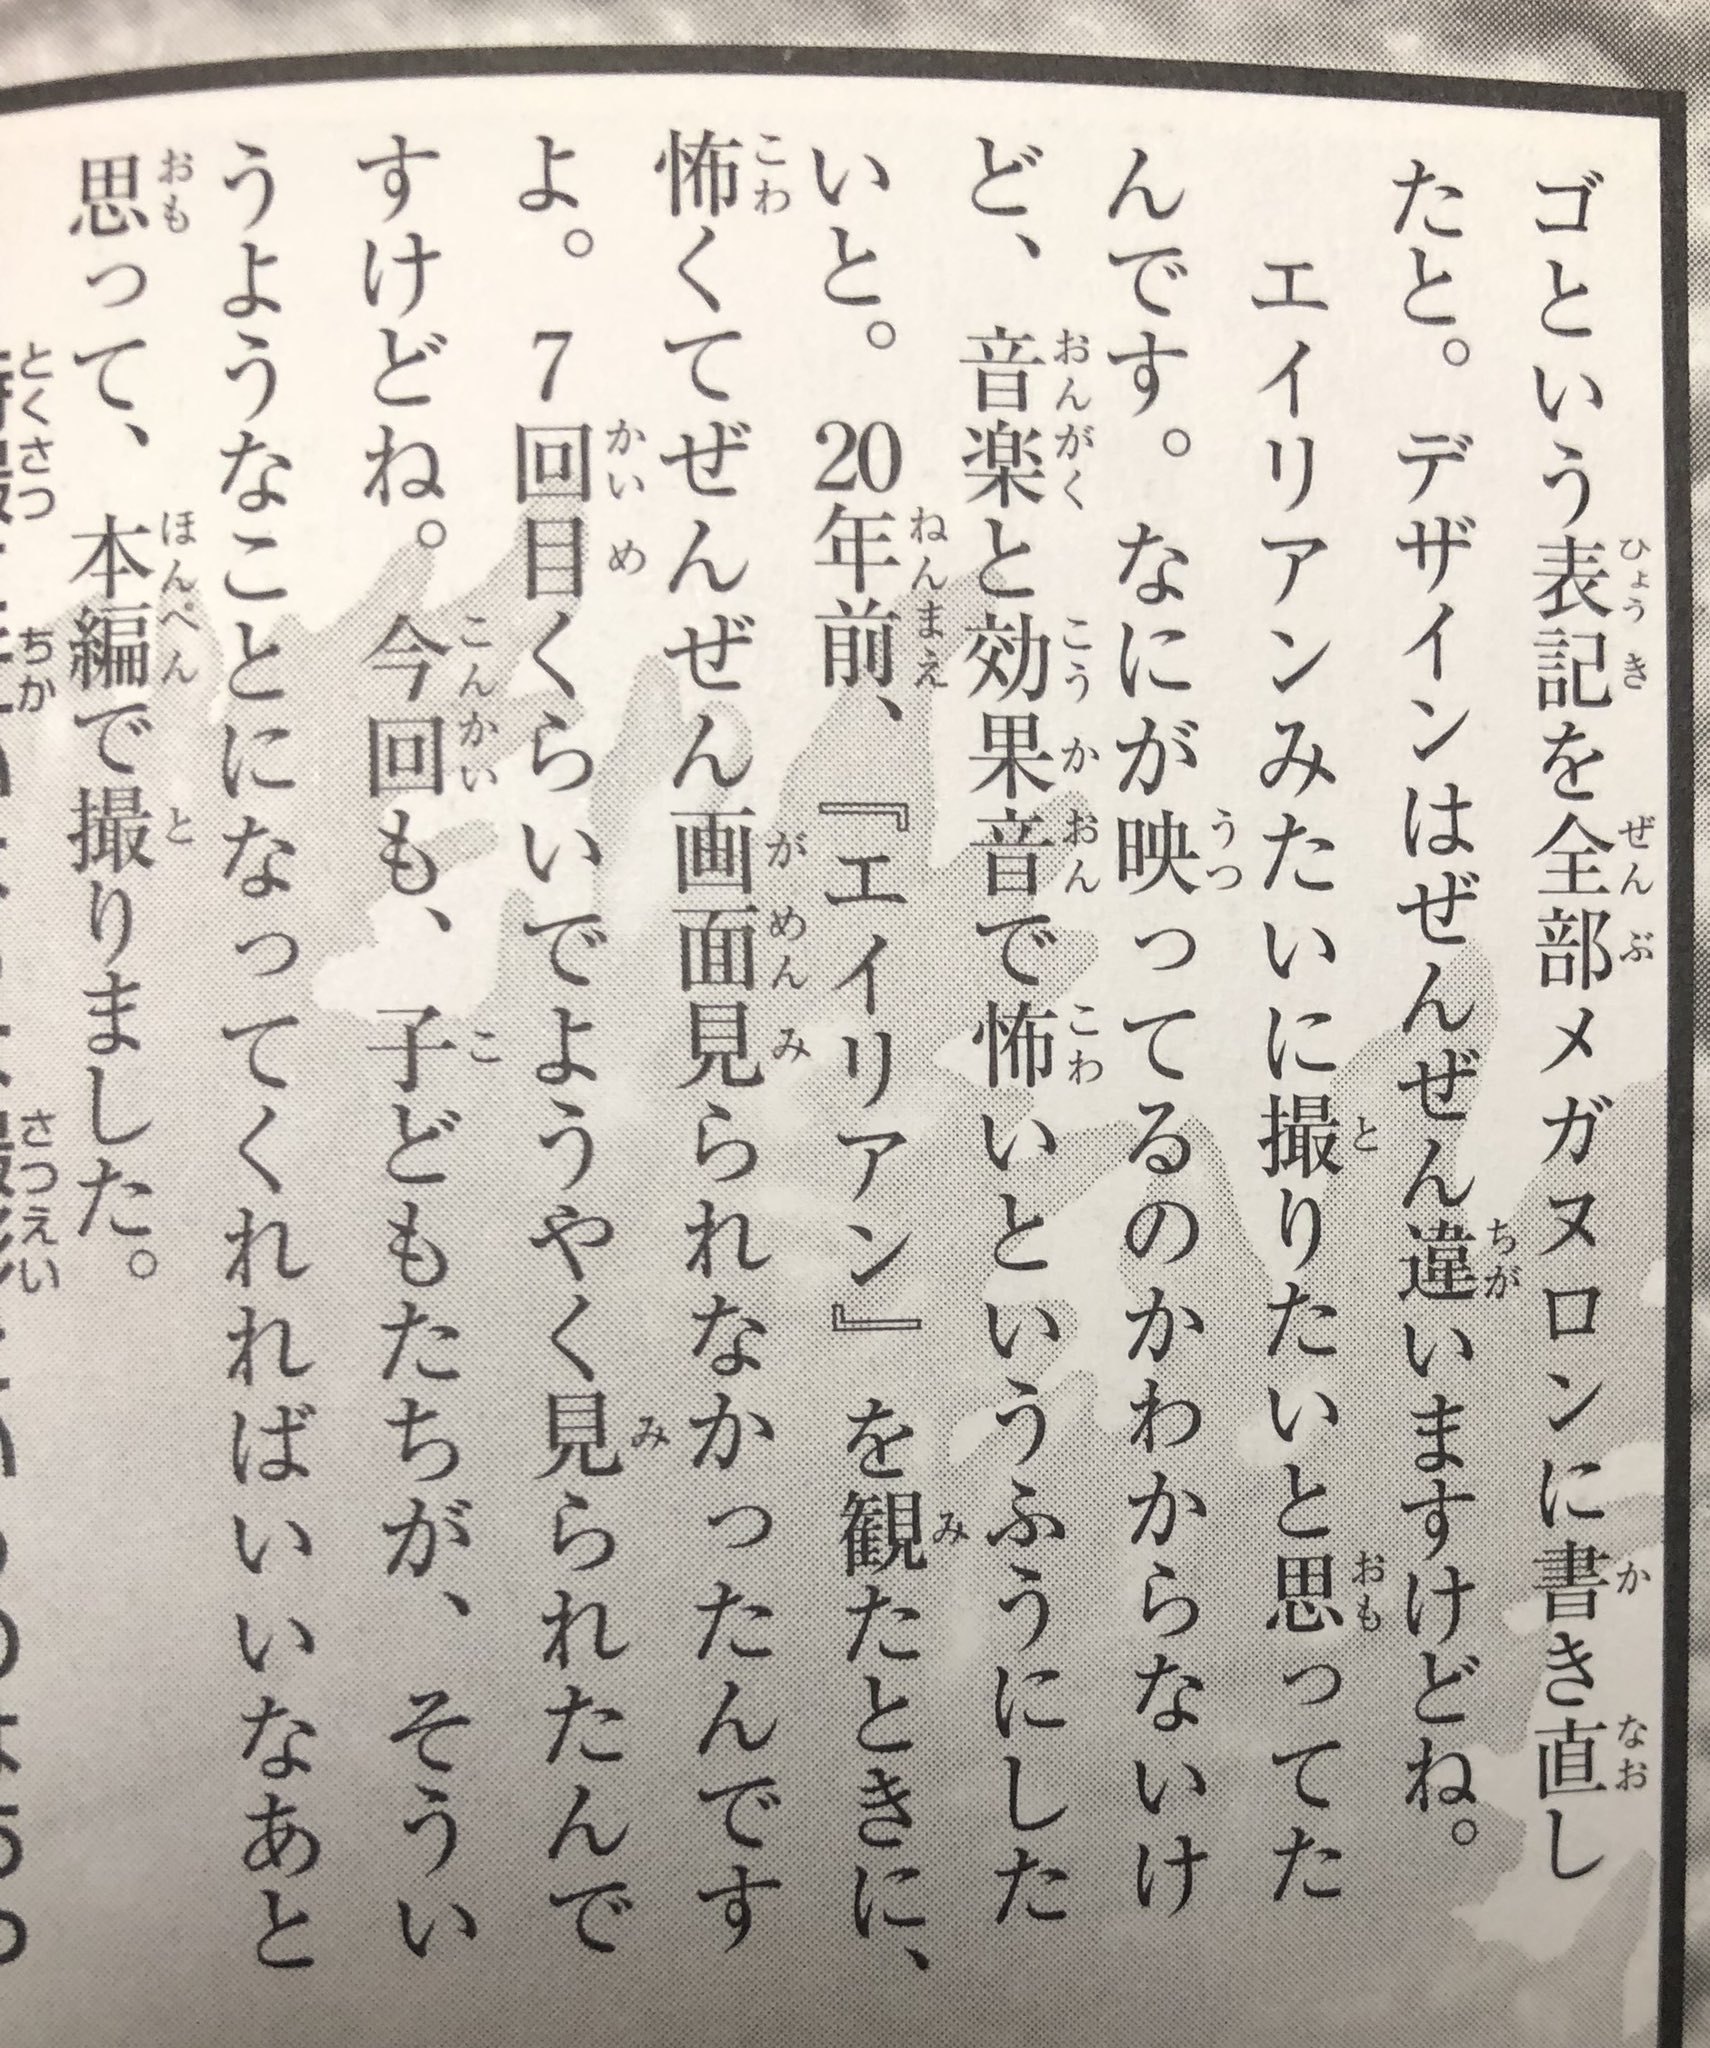 ゴという表記を全部メガヌロンに書き直し
たと。デザインはぜんぜん違いますけどね。
エイリアンみたいに撮りたいと思ってた
んです。なにが映ってるのかわからないけ
ど、音楽と効果音で怖いというふうにした
いと。20年前、『エイリアン』を観たときに、
怖くてぜんぜん画面見られなかったんです
よ。7回目くらいでようやく見られたんで
すけどね。今回も、子どもたちが、そうい
うようなことになってくれればいいなあと
思って、本編で撮りました。